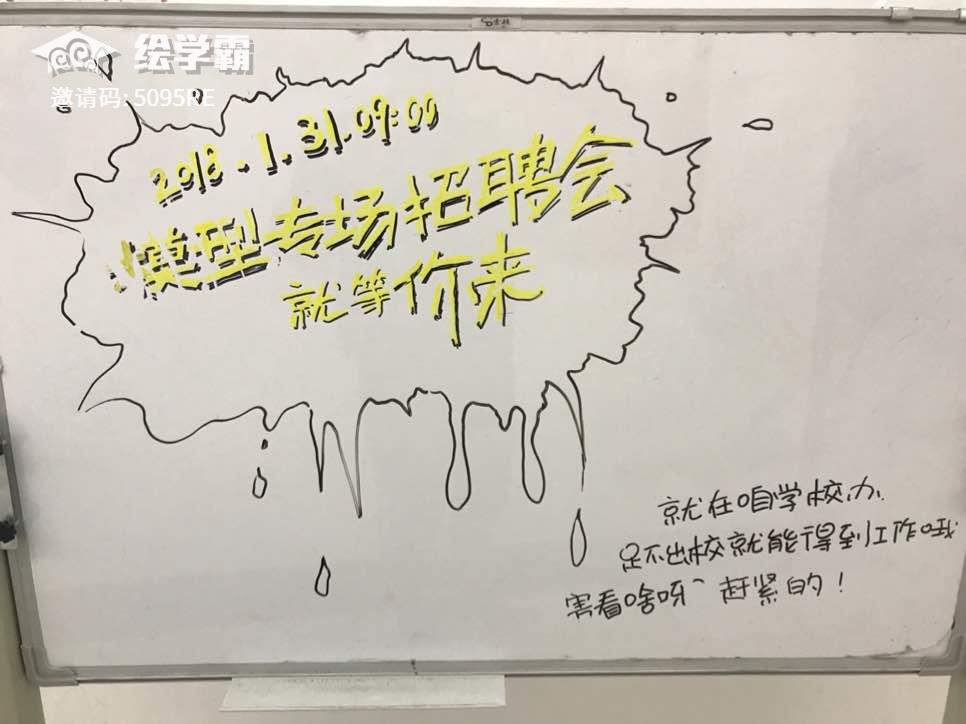 绘学霸
邀请码: 5095RE
2018.1.31.09:00
模型专场招聘会
就等你来
就在咱学校办.
足不出校就能得到工作哦
害看啥呀~赶紧的!